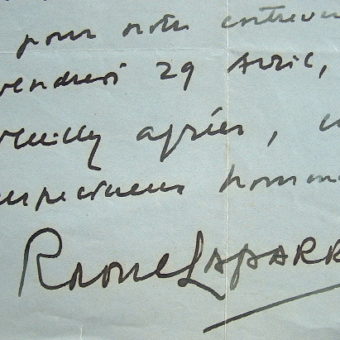 pour notre entrevu
vendredi 29 Avril,
veuillez agréer,
respectueux homma
Raoul LAPARR